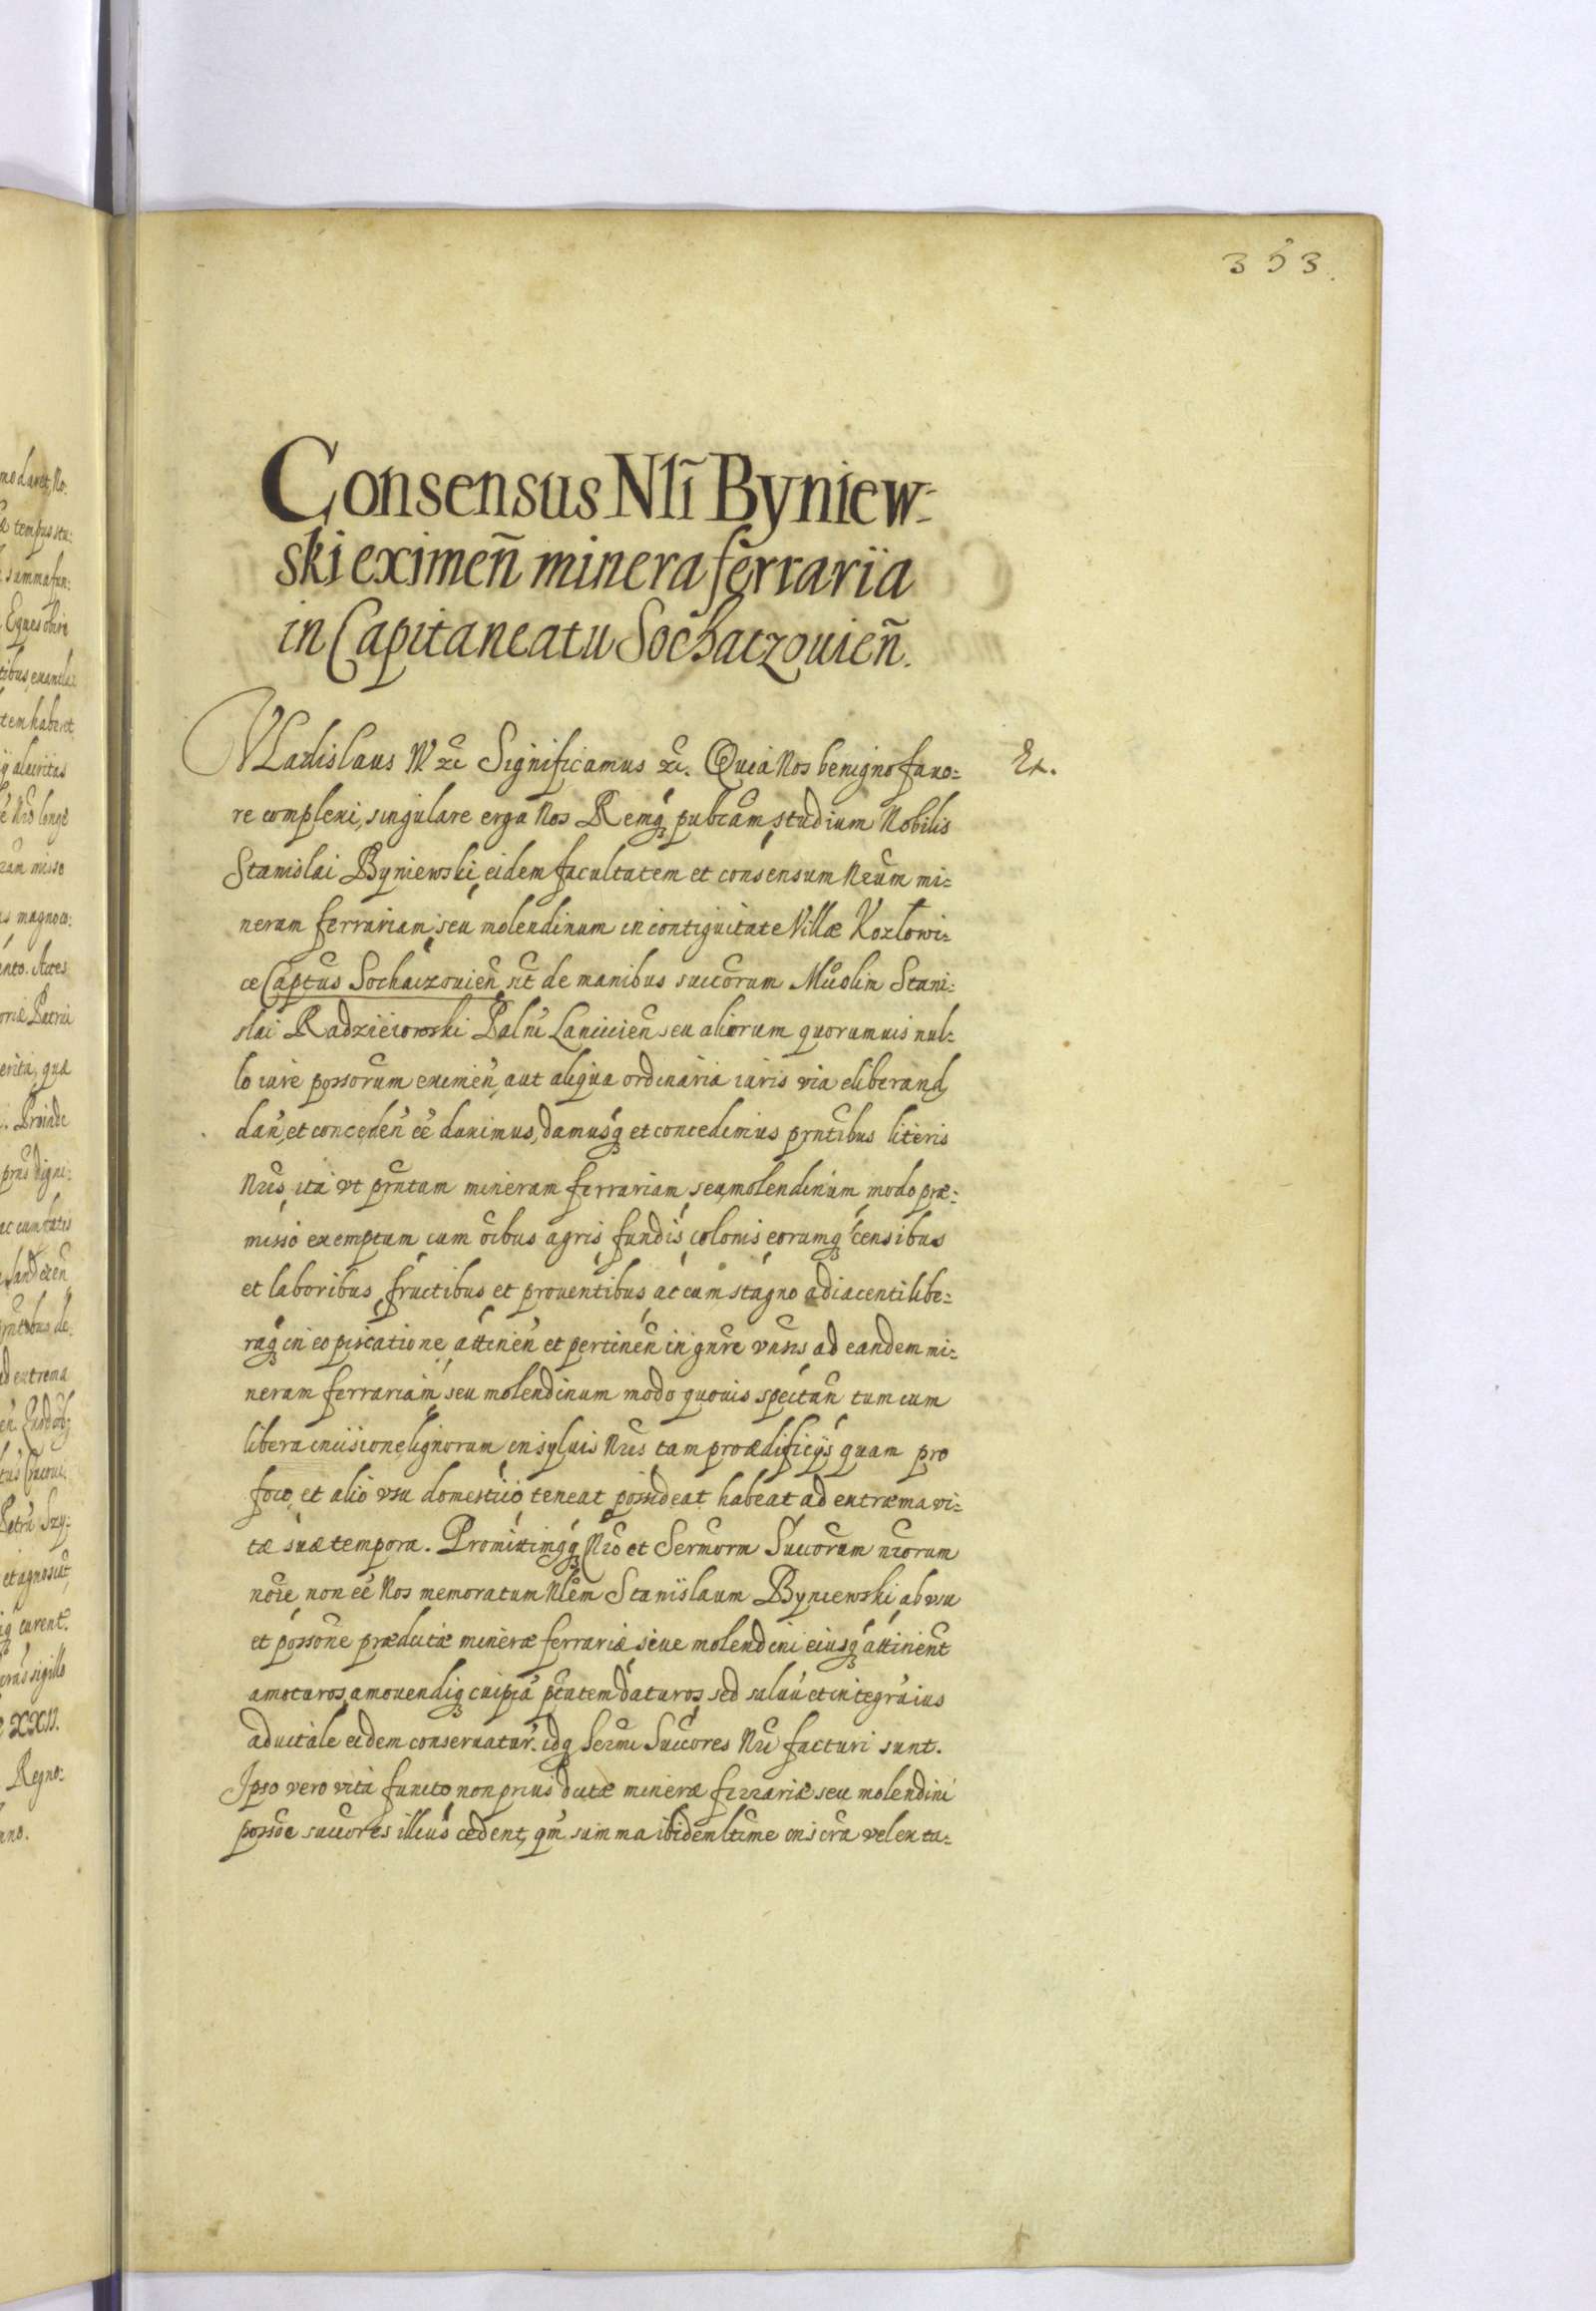 353.
Consensus Nli Byniew-
ski eximeñ minera ferraria
in Capitaneatu Sochaczouieñ.
VLadislaus IV etc Significamus etc. Quia Nos benigno fauo-
Ex.
re complexi, singulare erga Nos Remq3 pubcam studium Nobilis
Stanislai Byniewski, eidem facultatem et consensum Nrum mi-
neram ferrariam, seu molendinum in contiguitate Villæ Kozłowi-
ce Captus Sochaczouien̄ sit de manibus succorum Mci olim Stani-
slai Radzieiowski Palni Lancicien̄ seu aliorum quorumuis nul-
lo iure possorum eximen̄, aut aliqua ordinaria iuris via eliberand
dan̄, et conceden̄ ee duximus, damusq3 et concedimus prntibus literis
Nris, ita vt prntam mineram ferrariam, seu molendinum, modo præ-
misso exemptum cum oibus agris, fundis, colonis, eorumq3 censibus
et laboribus, fructibus et prouentibus, ac cum stagno adiacenti libe-
raq3 in eo piscatione, attinen̄ et pertinen̄ in gnre vnsis ad eandem mi-
neram ferrariam, seu molendinum modo quouis spectan̄ tum cum
libera incisione lignorum in syluis Nris tam pro ædificijs quam pro
foco, et alio vsu domestico teneat, possideat, habeat ad extræma vi-
tæ suæ tempora. Promittimq3 Nro et Sermorm Succorum nrorum
noie, non ee Nos memoratum Nlem Stanislaum Byniewski, ab vsu
et possone prædictæ mineræ ferrariæ, siue molendini eiusq3 attinent
amoturos, amouendiq3 cuipia ptatem daturos, sed saluu et integru ius
aduitale eidem conseruatur. idq3 Sermi Succores Nri facturi sunt.
Ipso vero vita functo, non prius dictæ mineræ ferrariæ seu molendini
possoe succores illius cedent, qm̄ summa ibidem ltime inscra vel exta-